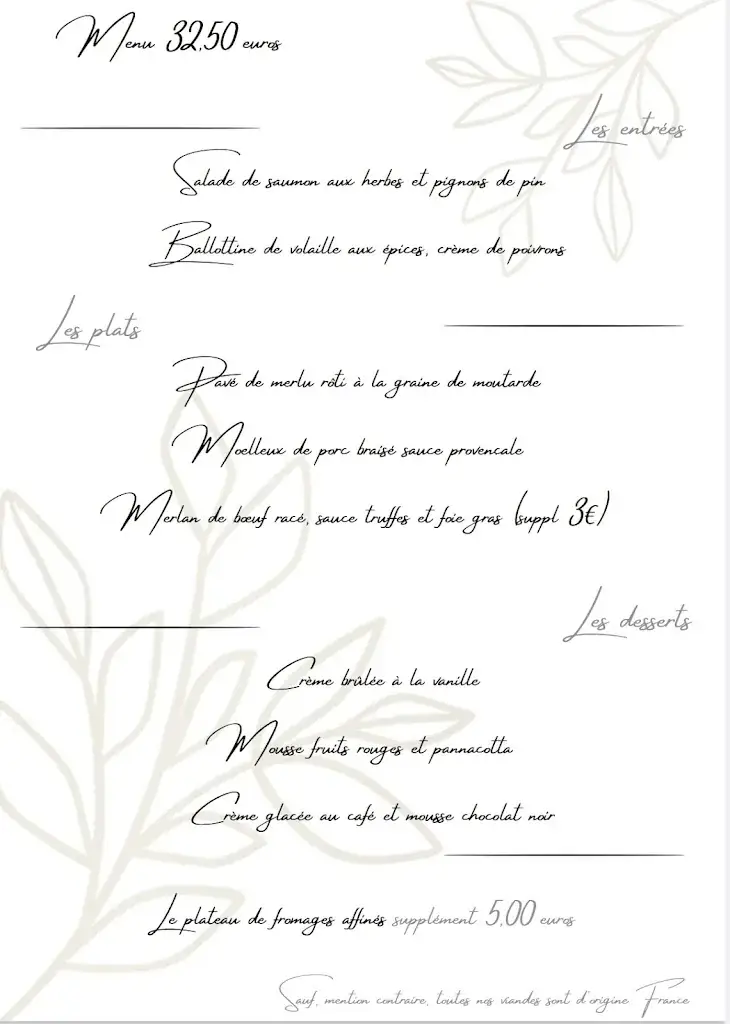 Menu 32,50 euros
Les entrées
Salade de saumon aux herbes et pignons de pin
Ballottine de volaille aux épices, crème de poivrons
Les plats
Pavé de merlu rôti à la graine de moutarde
Moelleux de porc braisé sauce provencale
Merlan de bœuf racé, sauce truffes et foie gras (suppl 3€)
Les desserts
Crème brûlée à la vanille
Mousse fruits rouges et pannacotta
Crème glacée au café et mousse chocolat noir
Le plateau de fromages affinés supplément 5,00 euros
Sauf, mention contraire, toutes nos viandes sont d'origine France